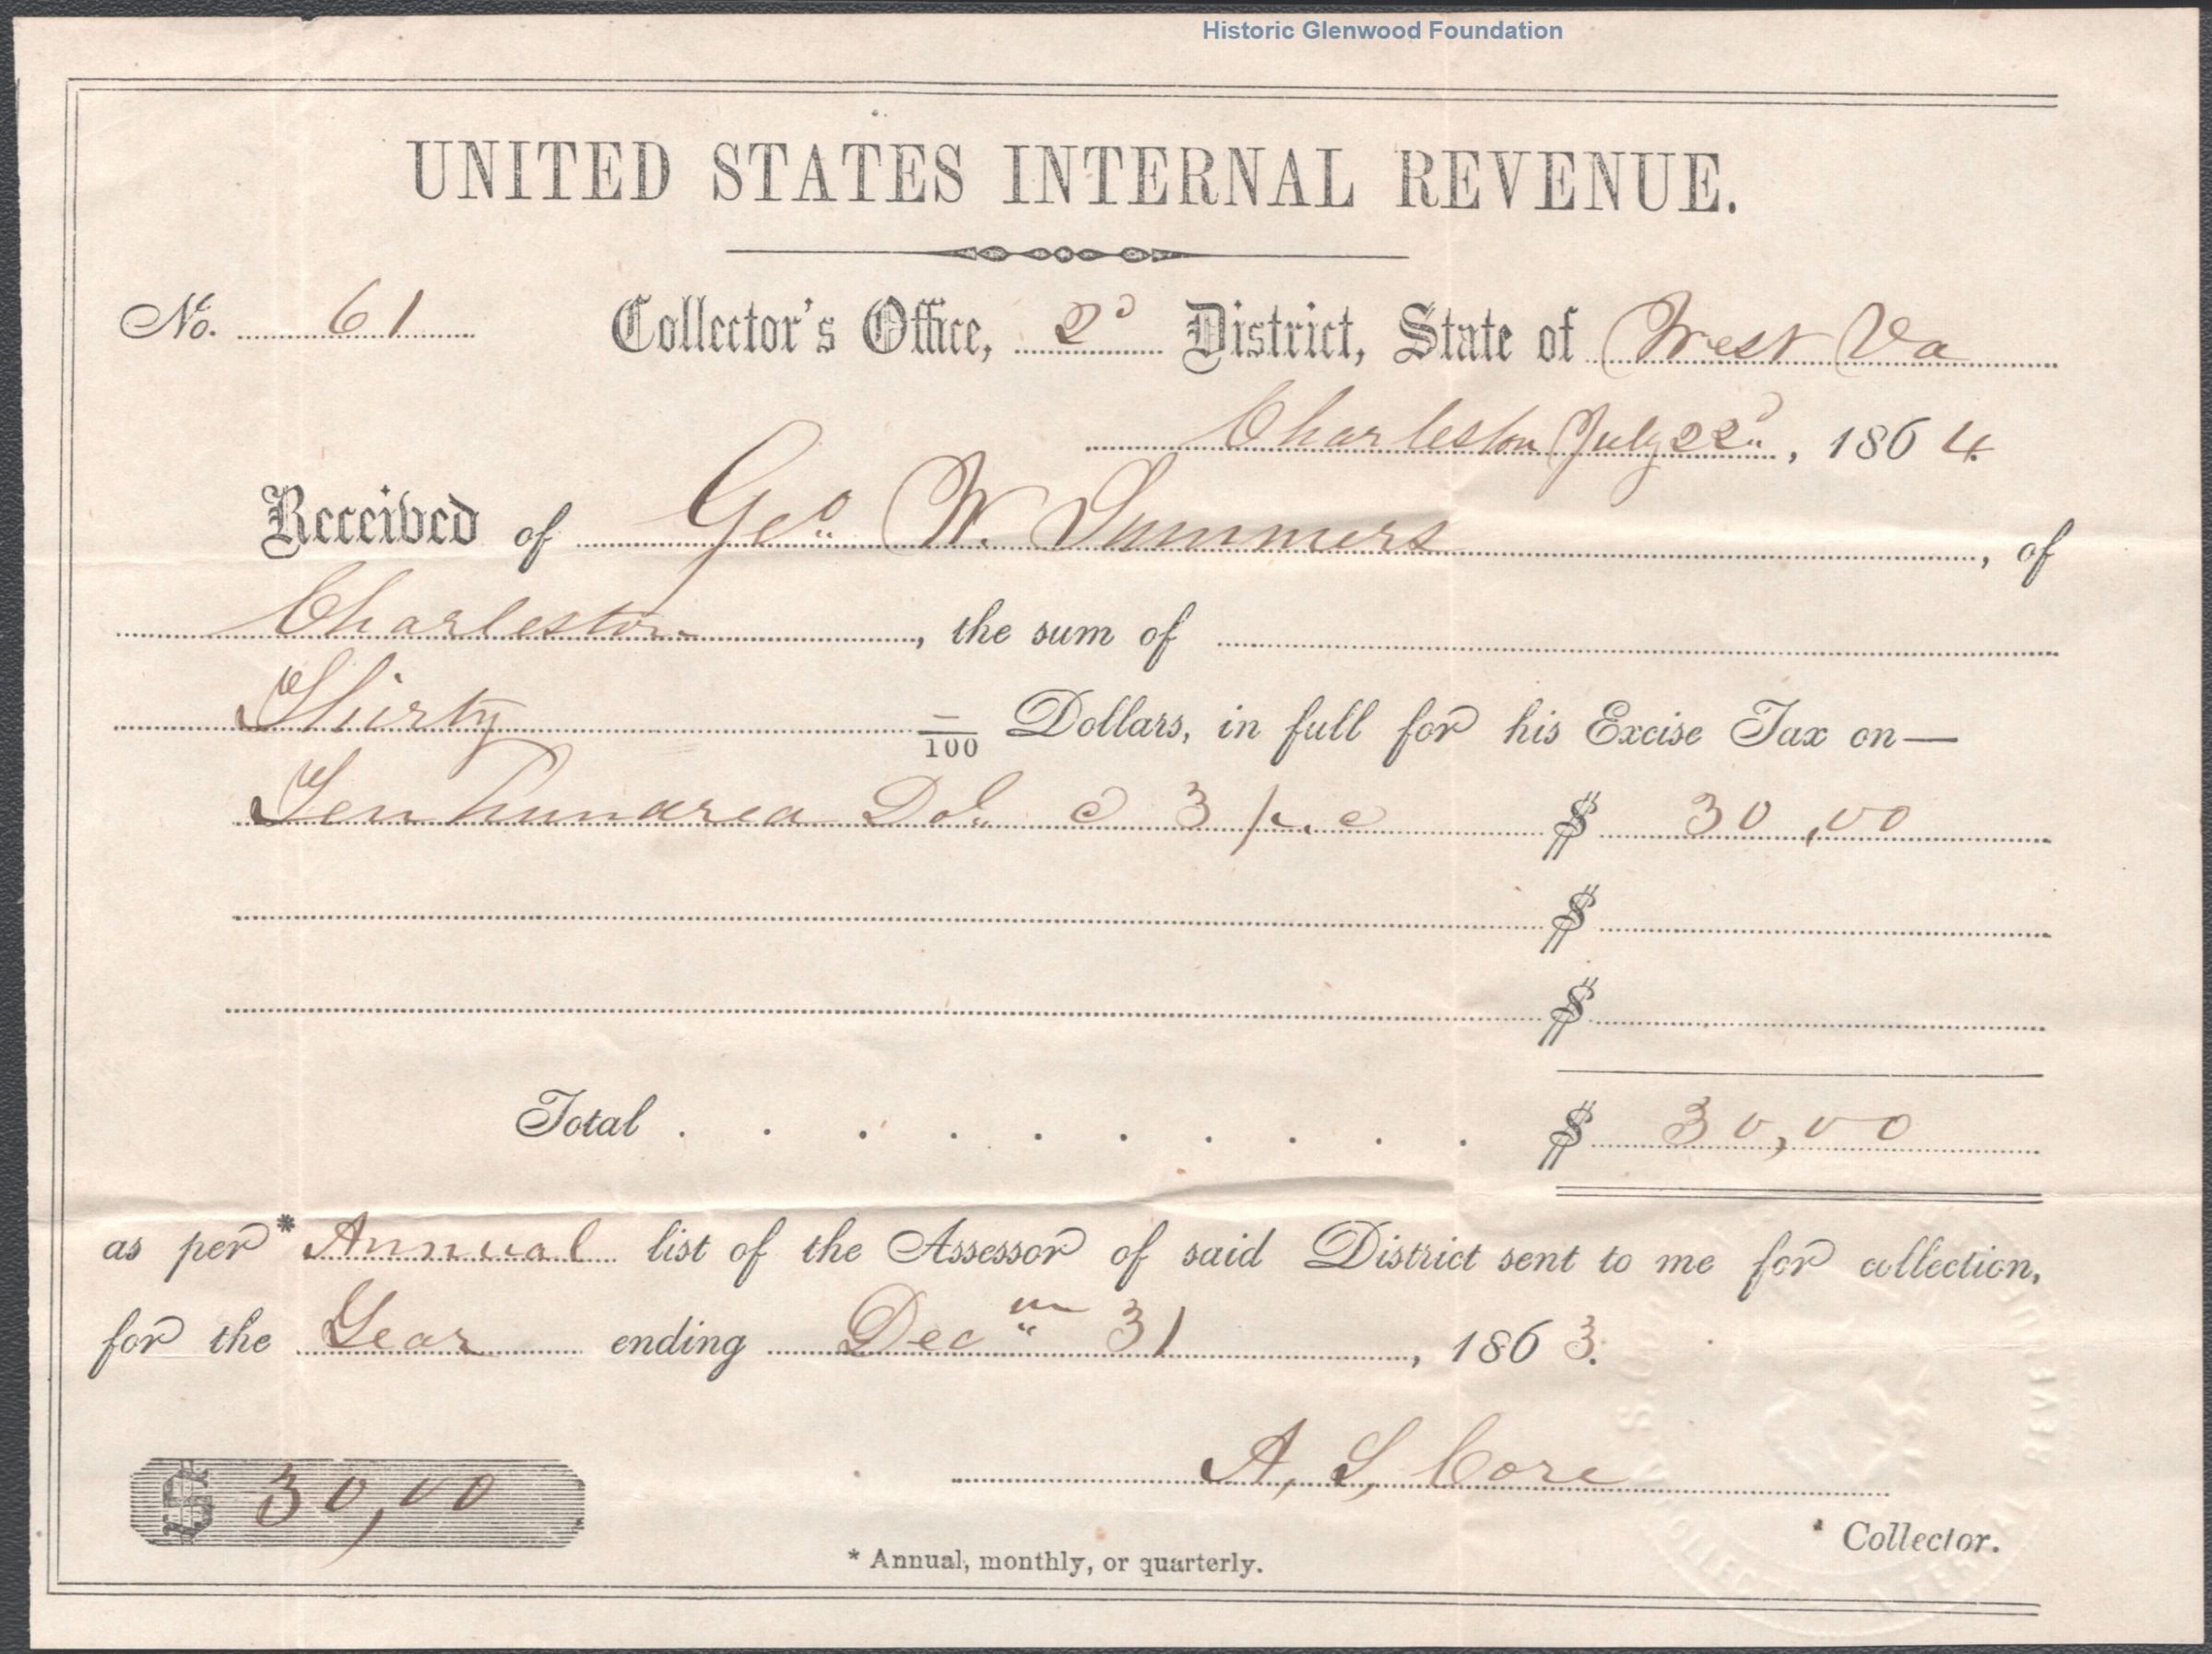 Historic Glenwood Foundation
UNITED STATES INTERNAL REVENUE.
No. 61 Collector's Office, 2d District, State of West Va
Charleston July 22d, 1864.
Received of Geo. W. Summers, of
Charleston, the sum of
Thirty —/100 Dollars, in full for his Excise Tax on—
Ten hundred Dol. @ 3 p. c $ 30,00
$
$
Total . . . . . . . . . . $ 30,00
as per* Annual list of the Assessor of said District sent to me for collection,
for the Year ending Dec 31, 1863.
$ 30,00
A, S, Core
Collector.
* Annual, monthly, or quarterly.